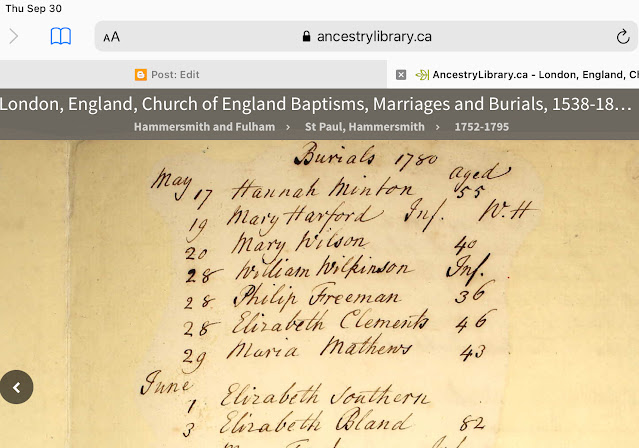 Thu Sep 30
AA ancestrylibrary.ca
Post: Edit
AncestryLibrary.ca - London, England, Cl
London, England, Church of England Baptisms, Marriages and Burials, 1538-18...
Hammersmith and Fulham › St Paul, Hammersmith › 1752-1795
Burials 1780
May aged
17 Hannah Minton 55
19 Mary Harford Inf. W.H
20 Mary Wilson 40
28 William Wilkinson Inf.
28 Philip Freeman 36
28 Elizabeth Clements 46
29 Maria Mathews 43
June
1 Elizabeth Southern
3 Elizabeth Bland 82